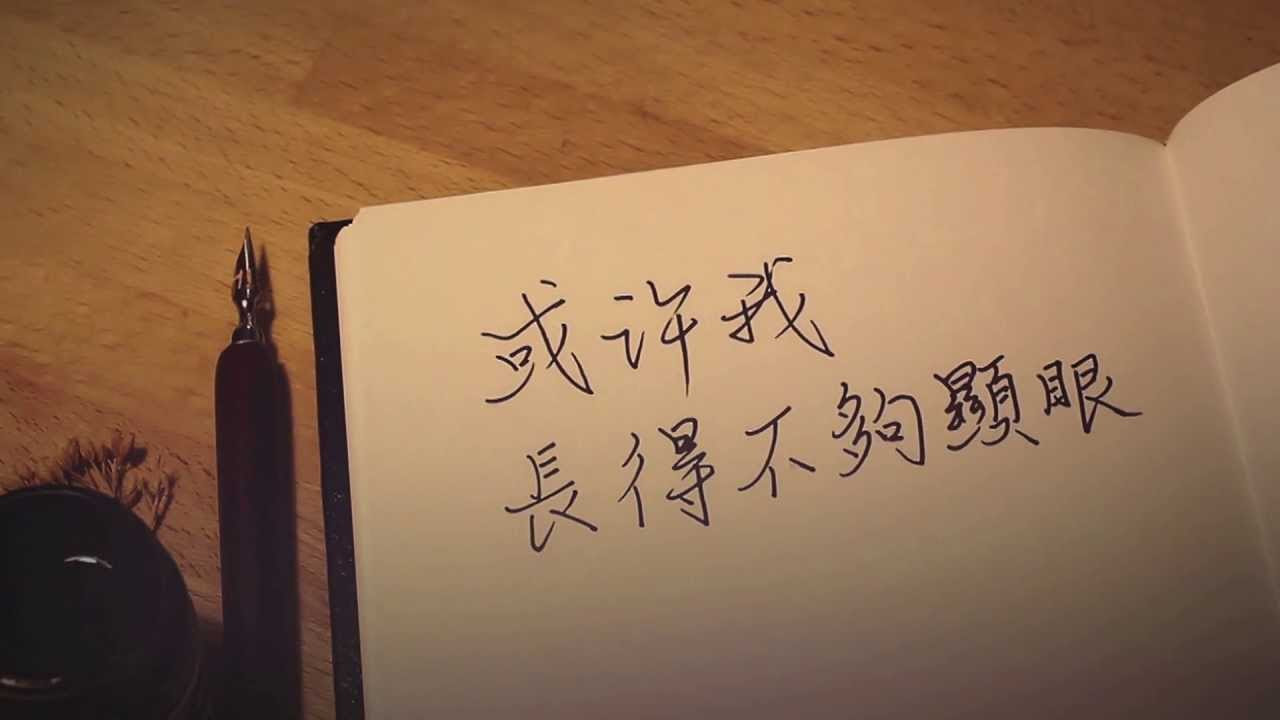 或許我
長得不夠顯眼